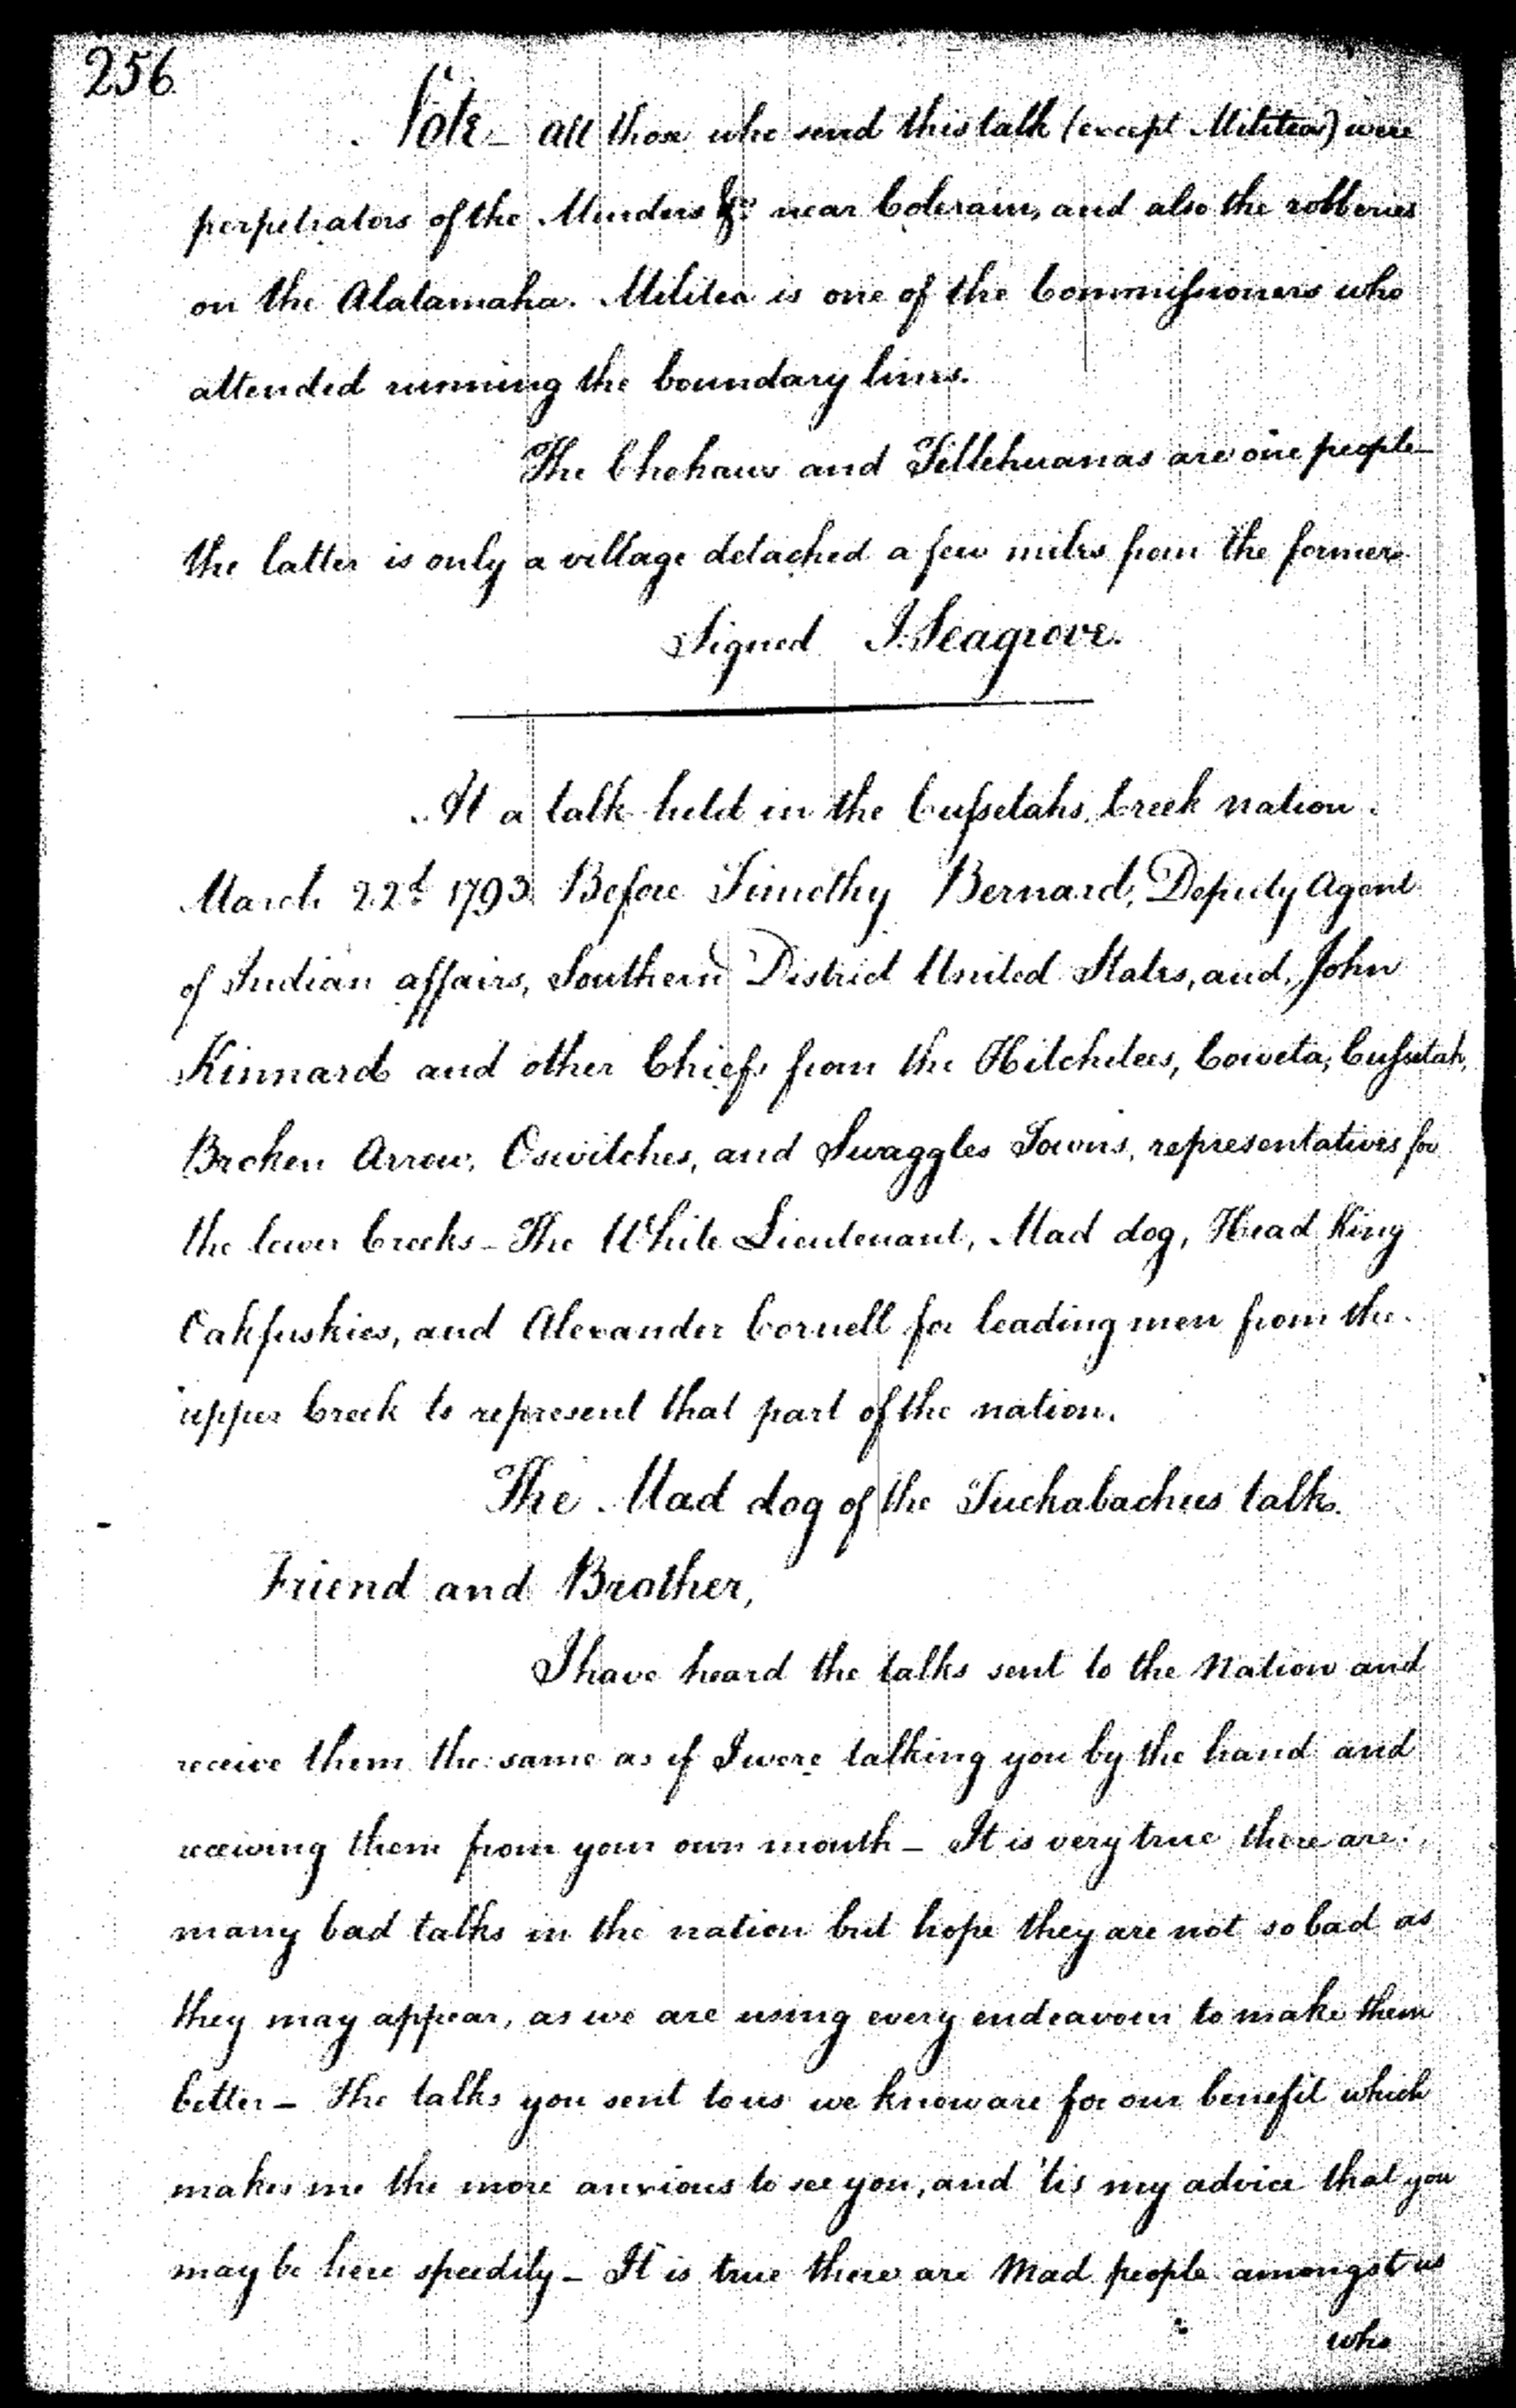 256
Note - all those who send this talk (except Militea) were
perpetrators of the Murders &ca near Colerain, and also the robberies
on the Alatamaha. Militea is one of the Commissioners who
attended running the boundary lines.
The Chehaws and Tellehuanas are one people
the latter is only a village detached a few miles from the former.
Signed J. Seagrove.
At a talk held in the Cussetahs, Creek nation.
March 22d 1793. Before Timothy Bernard, Deputy Agent
of Indian affairs, Southern District United States, and, John
Kinnard and other Chiefs from the Hitchetees, Coweta, Cussetah,
Broken Arrow, Oswitches, and Swaggles Towns, representatives for
the lower Creeks - The White Lieutenant, Mad dog, Head King
Oakfuskies, and Alexander Cornell for leading men from the
upper Creek to represent that part of the nation.
The Mad dog of the Tuckabachees talk.
Friend and Brother,
I have heard the talks sent to the Nation and
receive them the same as if I were talking you by the hand and
receiving them from your own mouth - It is very true there are
many bad talks in the nation but hope they are not so bad as
they may appear, as we are using every endeavour to make them
better - The talks you sent to us we know are for our benefit which
makes me the more anxious to see you, and 'tis my advice that you
may be here speedily - It is true there are Mad people amongst us
who